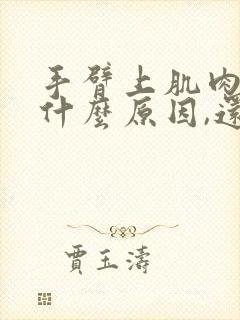 手臂上肌肉
什麼原因,還
賈玉濤